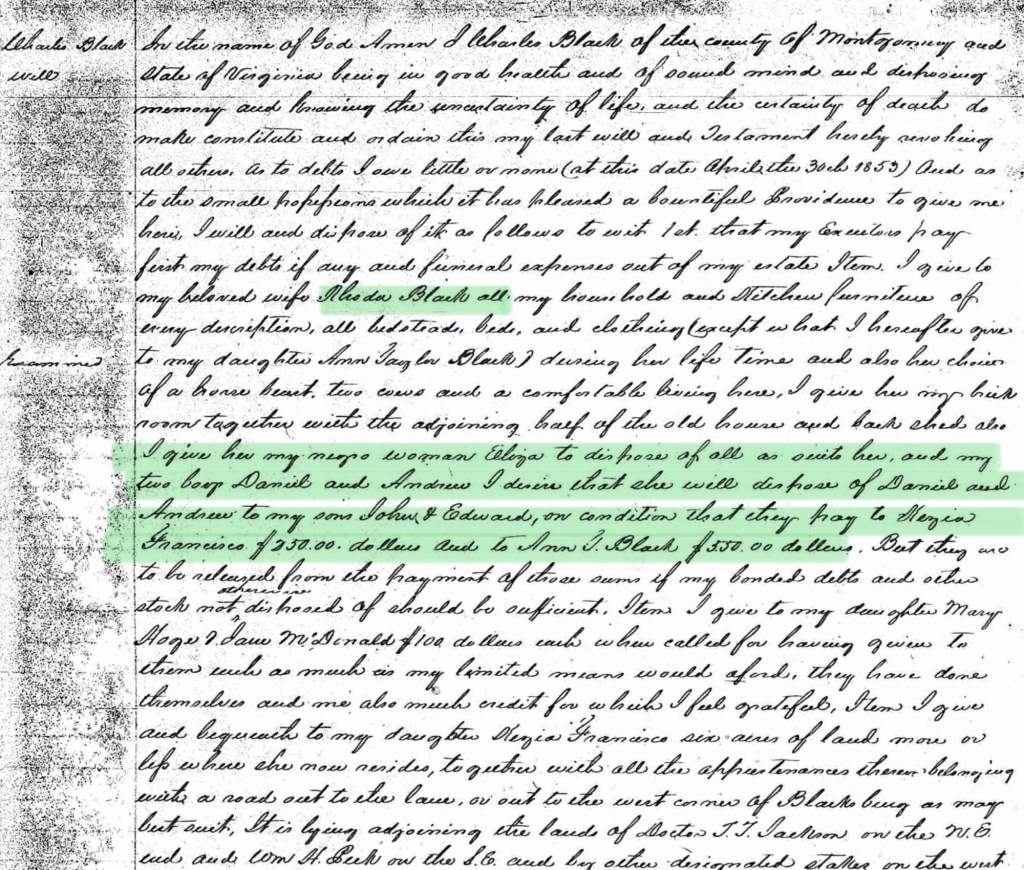 Charles Black
Will
In the name of God Amen I Charles Black of the county of Montgomery and
State of Virginia being in good health and of sound mind and disposing
memory and knowing the uncertainty of life, and the certainty of death do
make constitute and ordain this my last will and Testament hereby revoking
all others. As to debts I owe little or none (at this date April the 30th 1853) And as
to the small possessions which it has pleased a bountiful Providence to give me
here, I will and dispose of it as follows to wit 1st. that my Executors pay
first my debts if any and funeral expenses out of my estate Item. I give to
my beloved wife Rhoda Black all my household and Kitchen furniture of
every description, all bedsteads, beds, and clothing (except what I hereafter give
Examined
to my daughter Ann Taylor Black) during her life time and also her choice
of a horse beast, two cows and a comfortable living here, I give her my brick
room together with the adjoining half of the old house and back shed also
I give her my negro woman Eliza to dispose of all as suits her, and my
two boys Daniel and Andrew I desire that she will dispose of Daniel and
Andrew to my sons John & Edward, on condition that they pay to Kezia
Francisco $250.00. dollars and to Ann T. Black $550.00 dollars. But they are
to be released from the payment of those sums if my bonded debts and other
stock not otherwise disposed of should be sufficient. Item I give to my daughter Mary
Hoge & Jane McDonald $100 dollars each when called for having given to
them each as much as my limited means would aford, they have done
themselves and me also much credit for which I feel grateful, Item I give
and bequeath to my daughter Kezia Francisco six acres of land more or
less where she now resides, together with all the appurtenances thereon belonging
with a road out to the lane, or out to the west corner of Blacksburg as may
best suit, It is lying adjoining the lands of Doctor T.T. Jackson on the N.E.
end and Wm H. Peck on the S.E. and by other designated stakes on the west